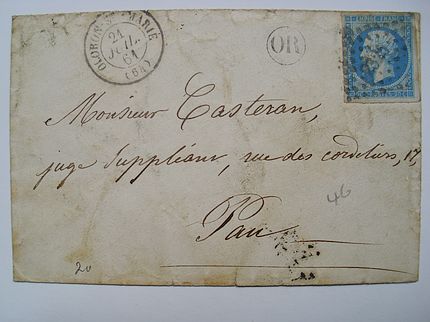 OLORON-Ste-MARIE
21
JUIL.
61
(64)
OR
EMPIRE FRANC
Monsieur Casteran,
juge Suppléant, rue des cordeliers, 17,
Pau
46
20